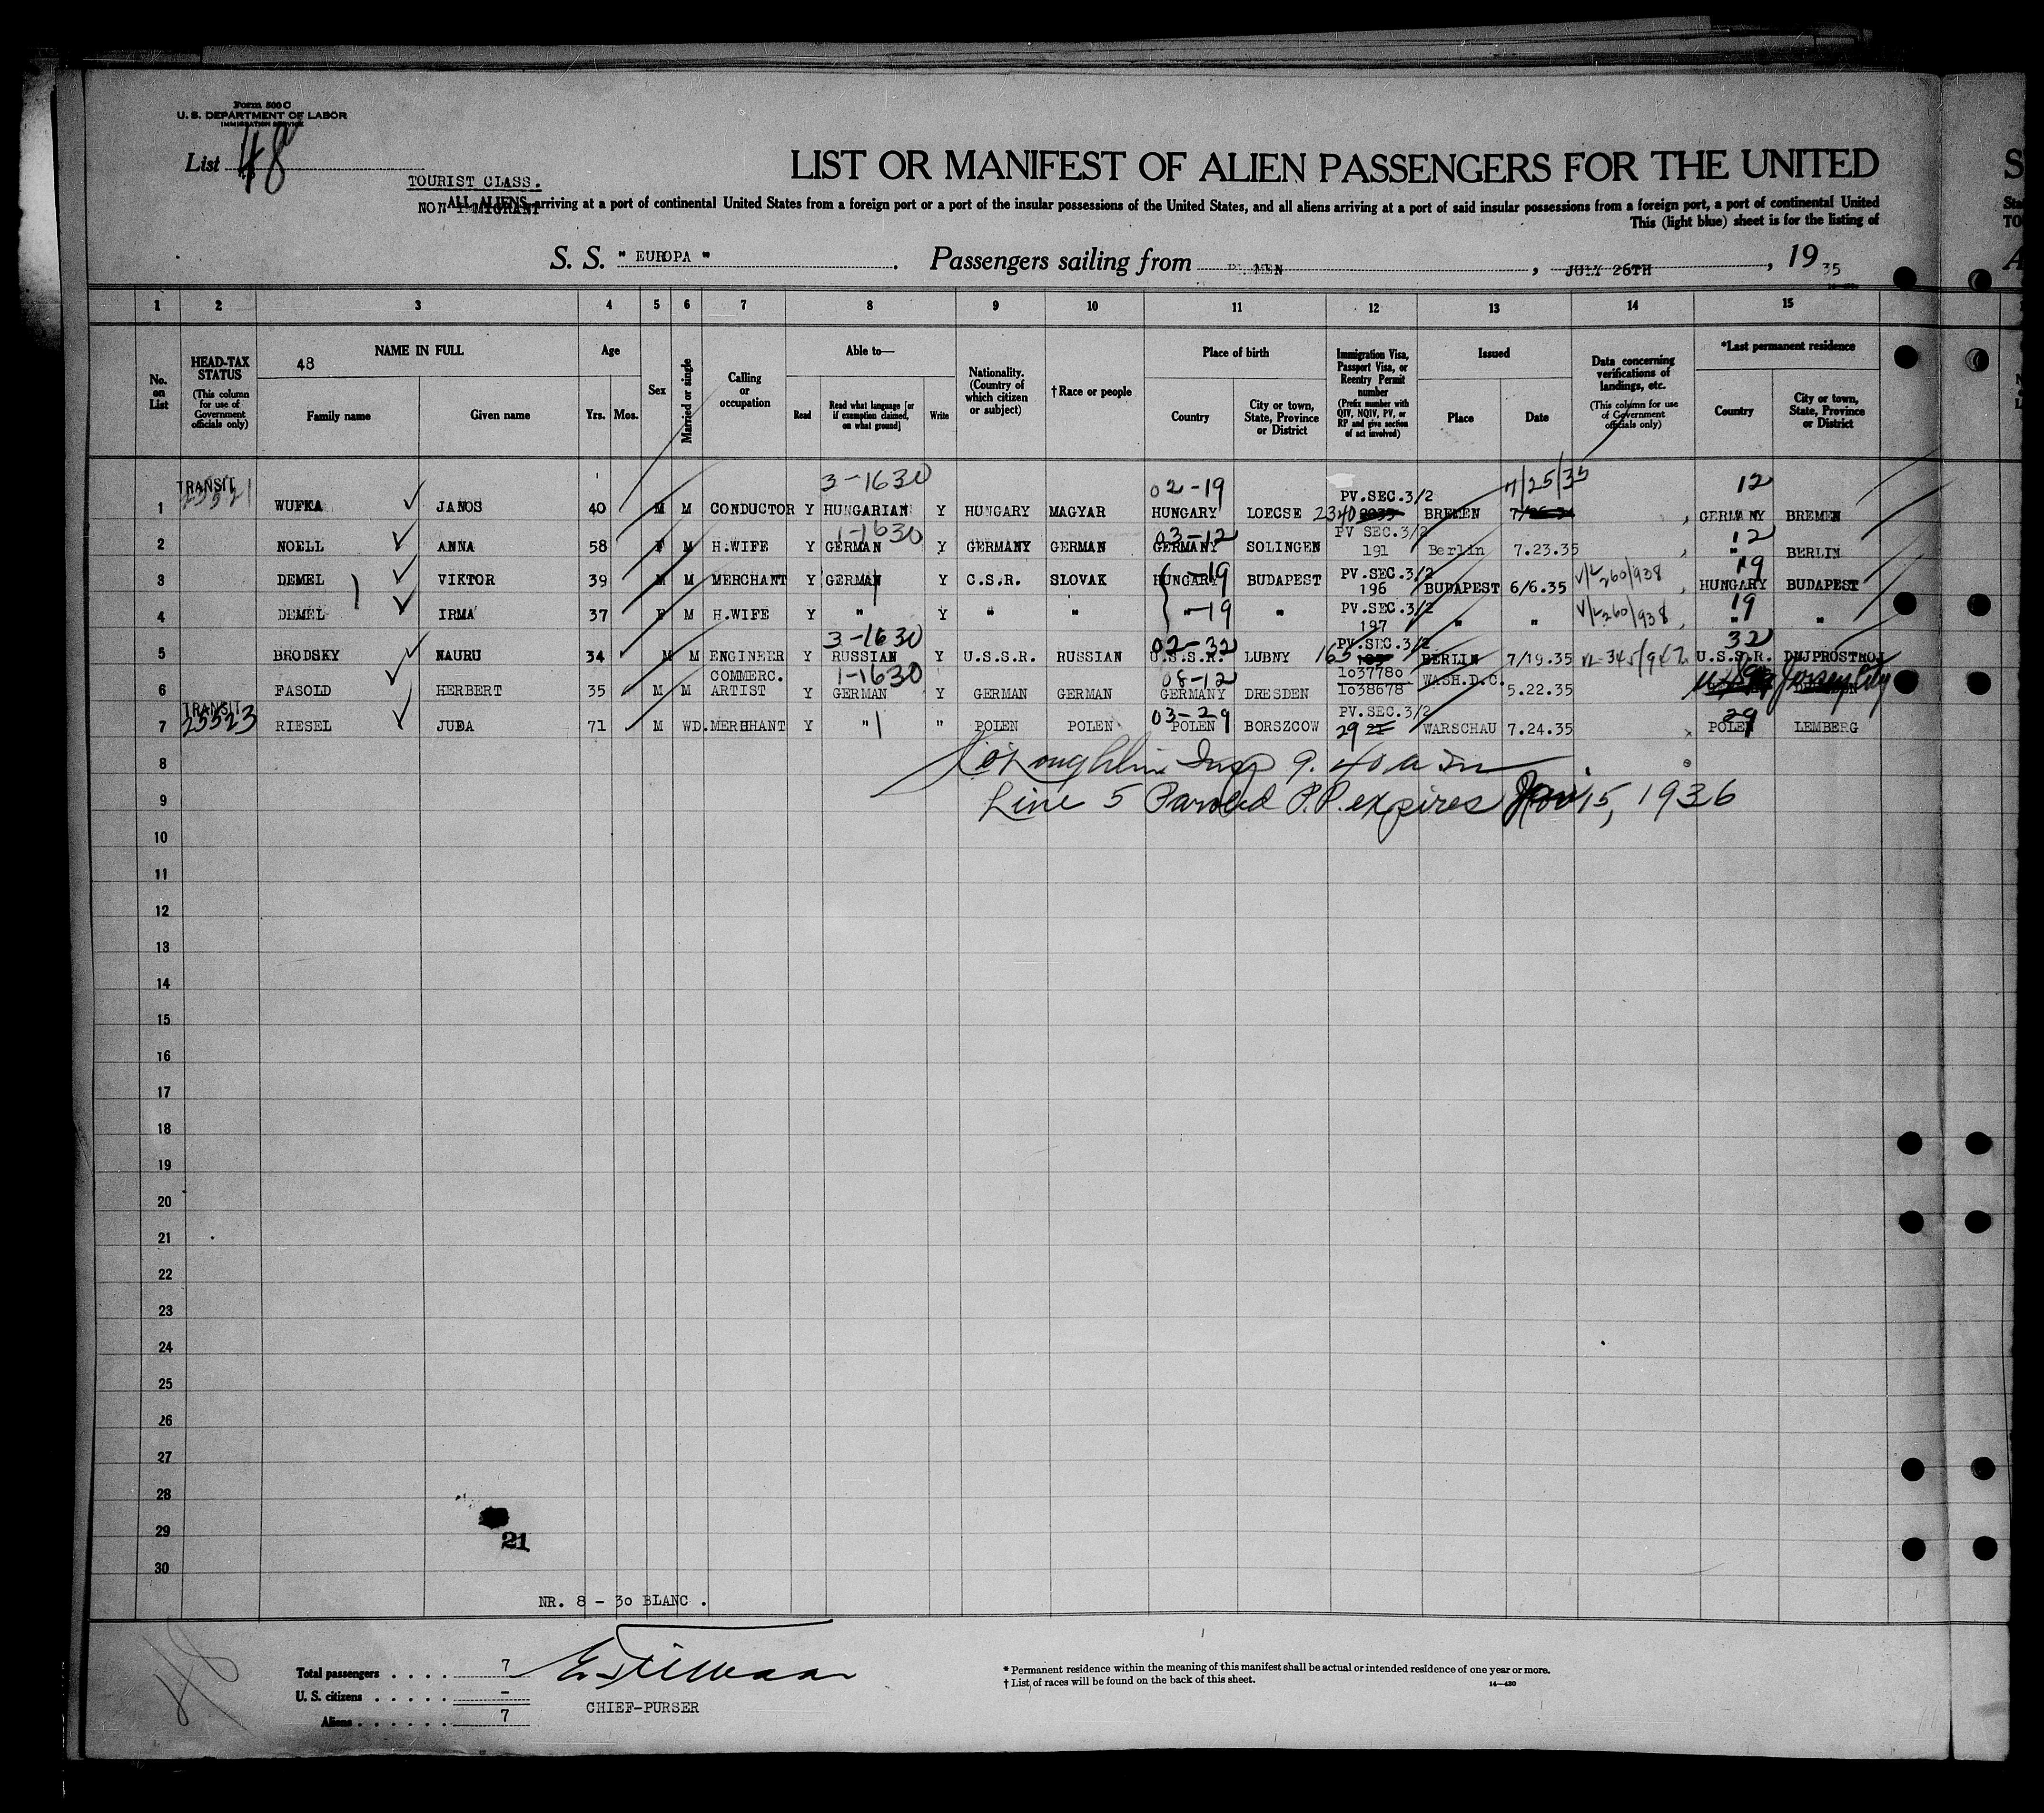 Form 500 C
U. S. DEPARTMENT OF LABOR
IMMIGRATION SERVICE
List 48
LIST OR MANIFEST OF ALIEN PASSENGERS FOR THE UNITED
TOURIST CLASS.
NON IMMIGRANT
ALL ALIENS arriving at a port of continental United States from a foreign port or a port of the insular possessions of the United States, and all aliens arriving at a port of said insular possessions from a foreign port, a port of continental United
This (light blue) sheet is for the listing of
S. S. " EUROPA " . Passengers sailing from BREMEN , JULY 26TH , 19 35
1 2 3 4 5 6 7 8 9 10 11 12 13 14 15
No. on List
HEAD-TAX STATUS (This column for use of Government officials only)
48 NAME IN FULL
Family name Given name
Age
Yrs. Mos.
Sex
Married or single
Calling or occupation
Able to—
Read Read what language [or if exemption claimed, on what ground] Write
Nationality. (Country of which citizen or subject)
† Race or people
Place of birth
Country City or town, State, Province or District
Immigration Visa, Passport Visa, or Reentry Permit number (Prefix number with QIV, NQIV, PV, or RP and give section of act involved)
Issued
Place Date
Data concerning verifications of landings, etc. (This column for use of Government officials only)
*Last permanent residence
Country City or town, State, Province or District
TRANSIT 3-1630 02-19 PV.SEC.3/2 7/25/35 12
1 WUFKA JANOS 40 M M CONDUCTOR Y HUNGARIAN Y HUNGARY MAGYAR HUNGARY LOECSE 2340 BREMEN GERMANY BREMEN
1-1630 03-12 PV SEC.3/2 12
2 NOELL ANNA 58 F M H.WIFE Y GERMAN Y GERMANY GERMAN GERMANY SOLINGEN 191 Berlin 7.23.35 " BERLIN
3 DEMEL VIKTOR 39 M M MERCHANT Y GERMAN Y C.S.R. SLOVAK HUNGARY -19 BUDAPEST PV.SEC.3/2 196 BUDAPEST 6/6.35 V/L 260/938 19 HUNGARY BUDAPEST
4 DEMEL IRMA 37 F M H.WIFE Y " Y " " " -19 " PV.SEC.3/2 197 " " V/L 260/938 19 " "
3-1630 02-32 PV.SEC.3/2 32
5 BRODSKY NAURU 34 M M ENGINEER Y RUSSIAN Y U.S.S.R. RUSSIAN U.S.S.R. LUBNY 163 BERLIN 7/19.35 VL 345/947 U.S.S.R. DNJPROSTROJ
1-1630 08-12
6 FASOLD HERBERT 35 M M COMMERC. ARTIST Y GERMAN Y GERMAN GERMAN GERMANY DRESDEN 1o3778o 1o38678 WASH.D.C. 5.22.35 Jersey City
TRANSIT 25523 03-29 PV.SEC.3/2 29
7 RIESEL JUDA 71 M WD. MERCHANT Y " " POLEN POLEN POLEN BORSZCOW 29 WARSCHAU 7.24.35 POLEN LEMBERG
8 Insp 9.40 a m
9 Line 5 Paroled P.P. expires 15, 1936
10
11
12
13
14
15
16
17
18
19
20
21
22
23
24
25
26
27
28
29
21
30
NR. 8 - 3o BLANC .
48
Total passengers . . . . 7
U. S. citizens . . . . . –
Aliens . . . . . . 7
CHIEF-PURSER
* Permanent residence within the meaning of this manifest shall be actual or intended residence of one year or more.
† List of races will be found on the back of this sheet.
14—430